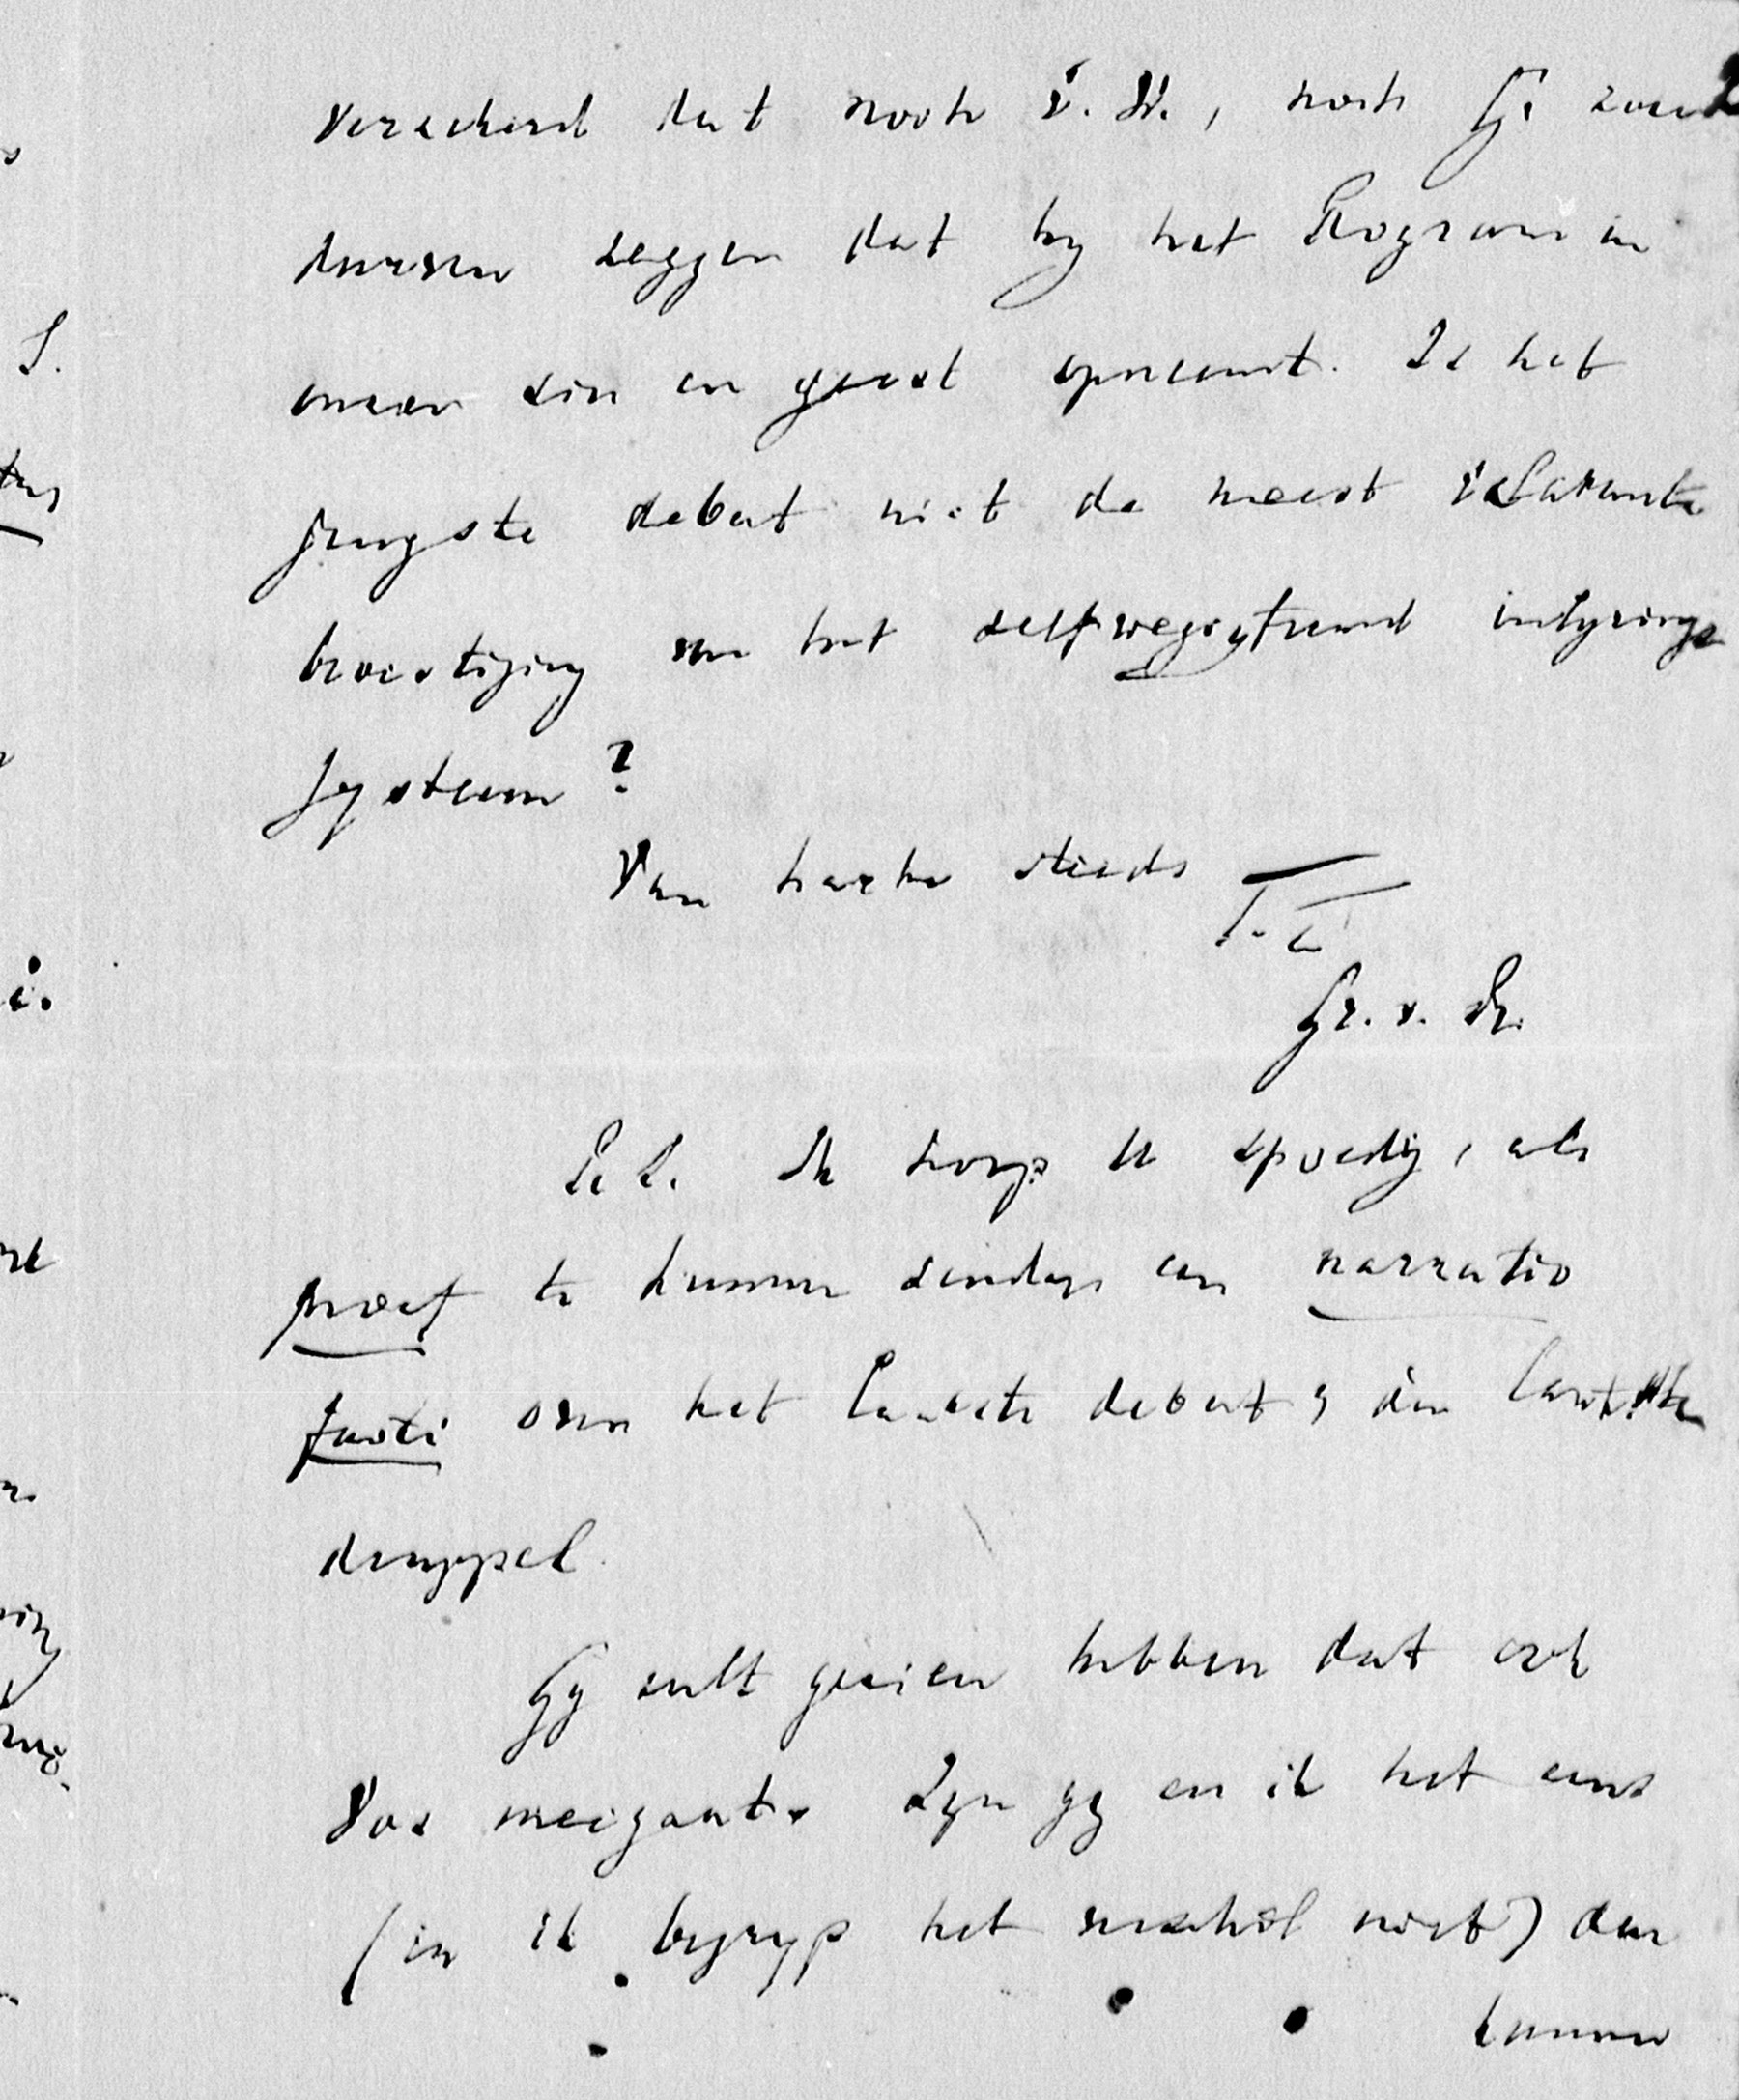 verzekerd dat noch v. W., noch Gr zou
durven zeggen dat hy het Program in
onzen zin en geest opneemt. Is het
jongste debat niet de meest éclatante
bevestiging van het zelfwegcyferend
systeem?
Van harte steeds
T. t.
Gr. v. Pr.
P.S. Ik hoop U spoedig, als
proef te kunnen zenden een narratio
facti over het laatste debat; den laatsten
druppel.
Gy zult gezien hebben dat ook
Vos meegaat. Zyn gy en ik het eens
(en ik begryp het verschil niet) dan
kunnen